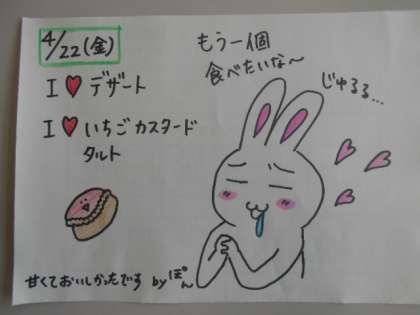 4/22(金)
I ♥ デザート
I ♥ いちごカスタード
タルト
もう一個
食べたいな〜
じゅるる…
甘くておいしかったです byぽん